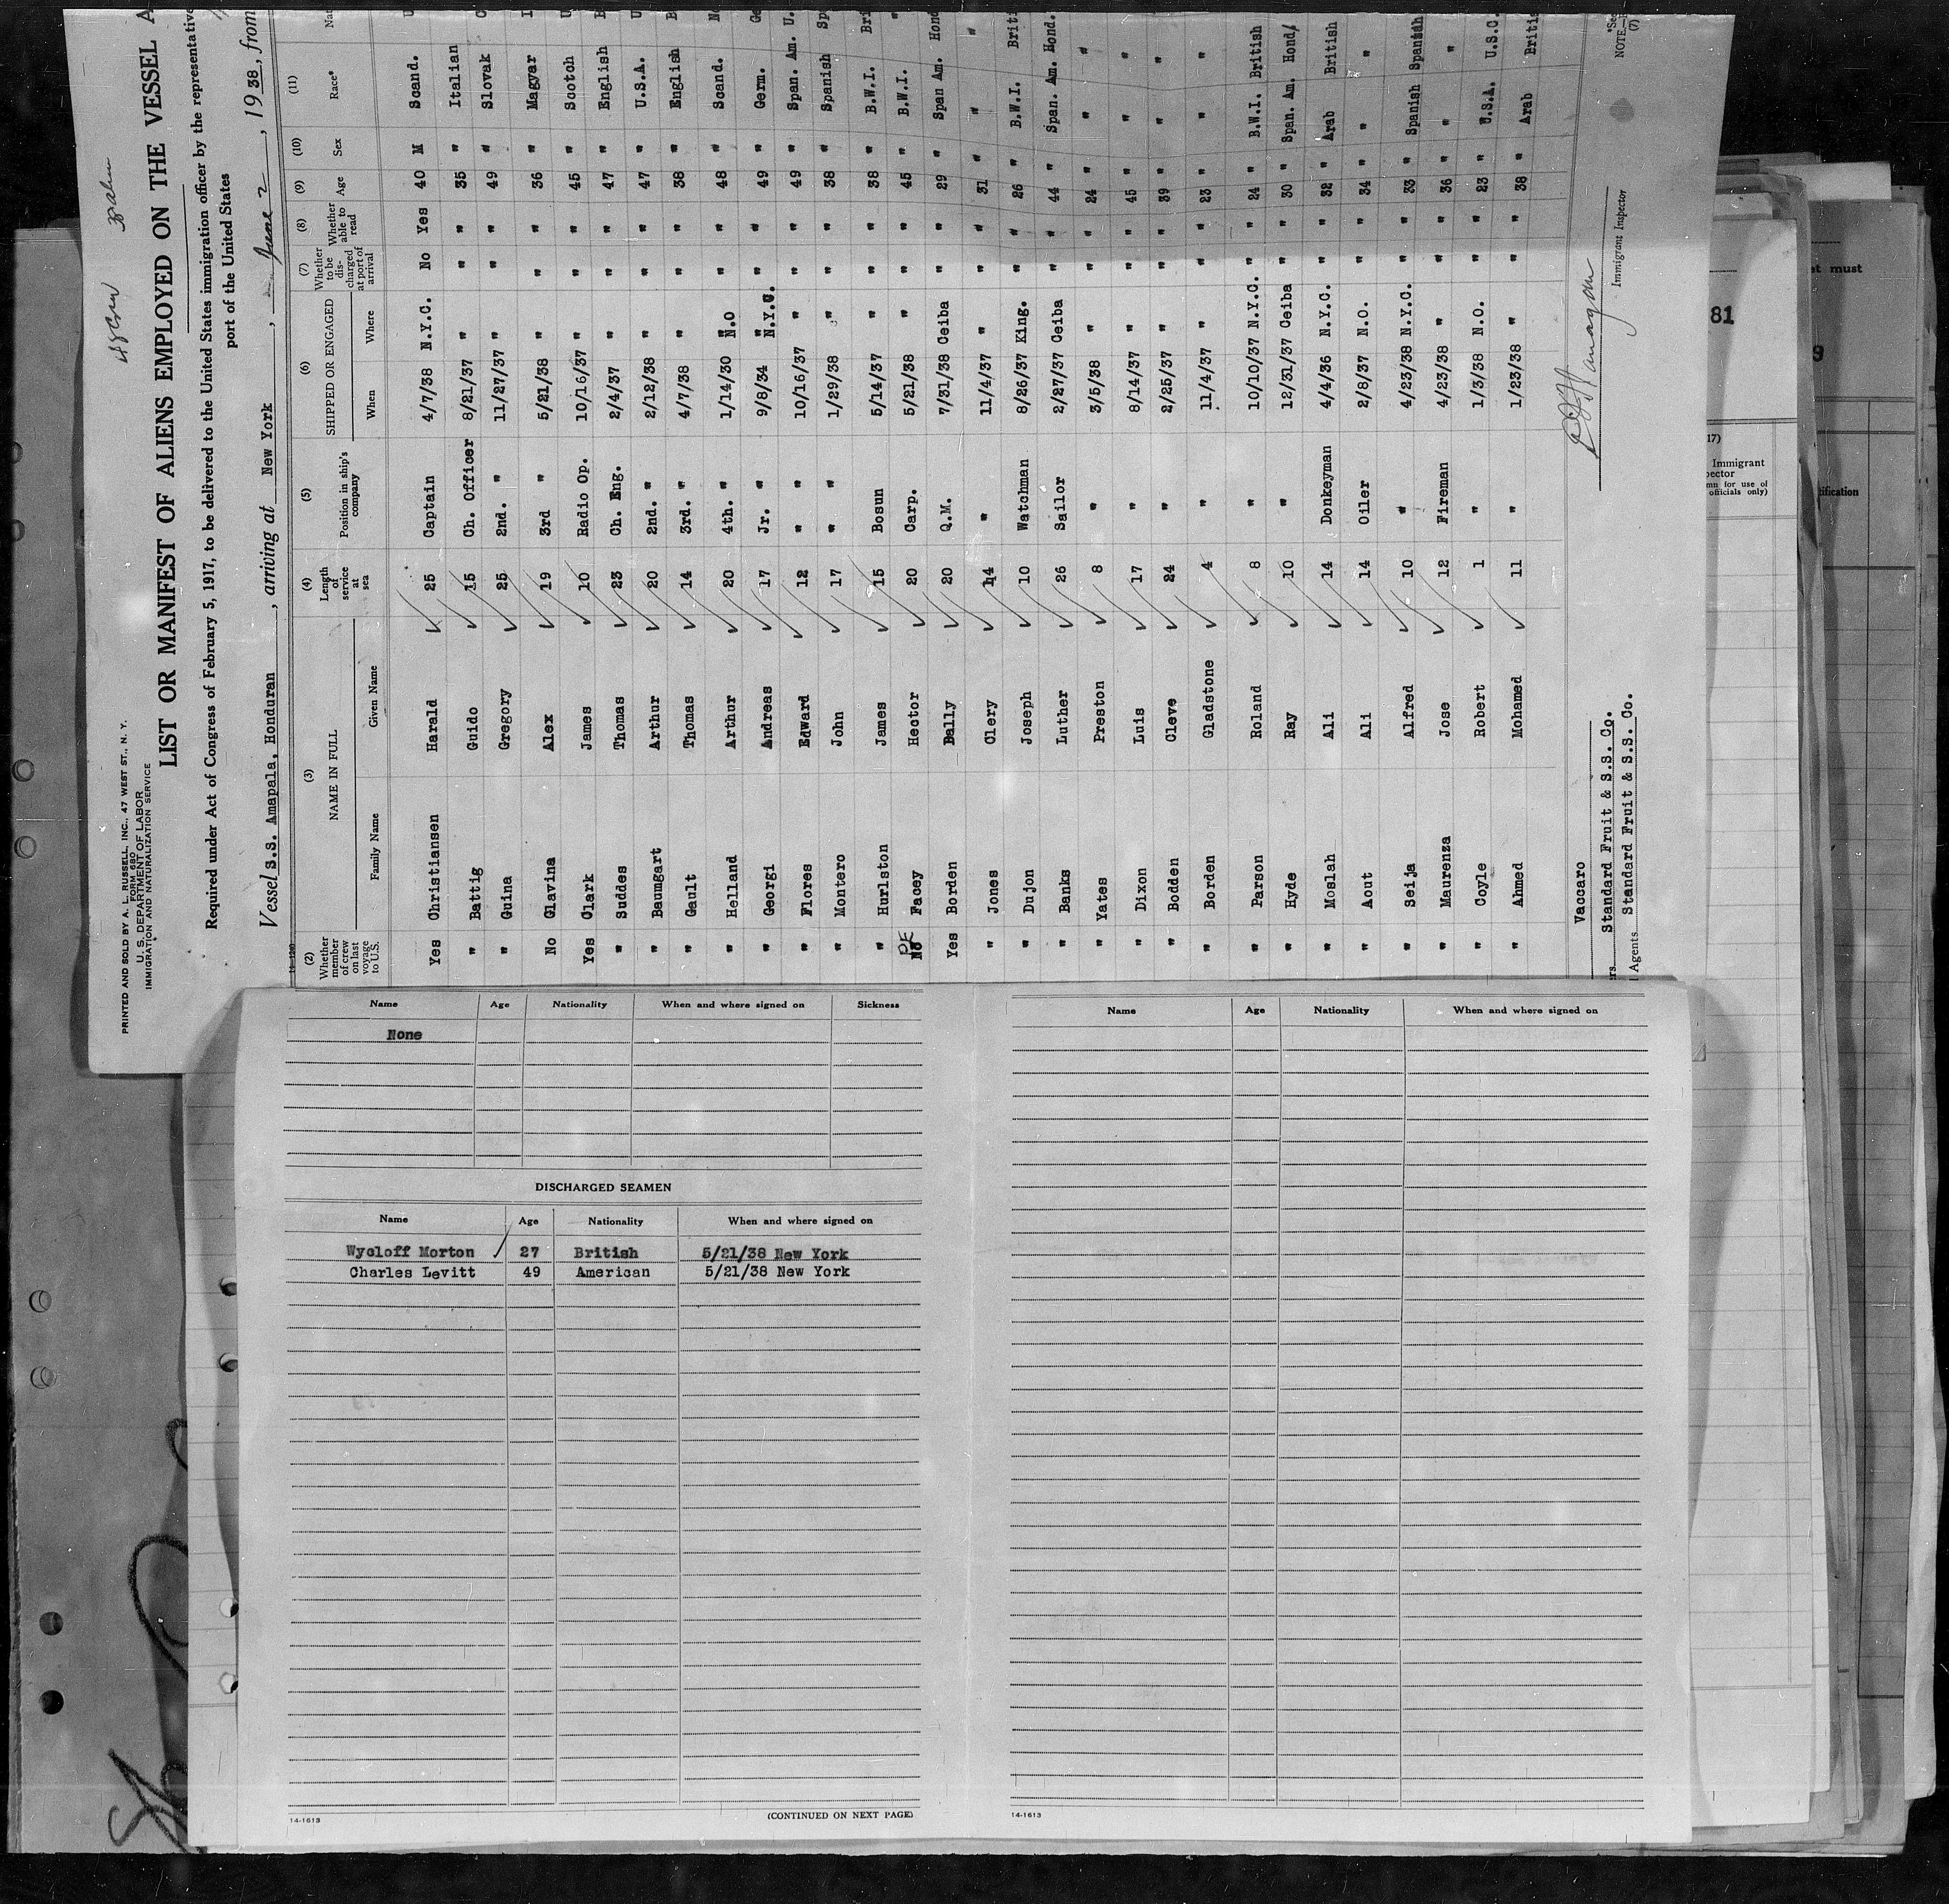 PRINTED AND SOLD BY A. L. RUSSELL, INC., 47 WEST ST., N. Y.
FORM 680
U. S. DEPARTMENT OF LABOR
IMMIGRATION AND NATURALIZATION SERVICE
LIST OR MANIFEST OF ALIENS EMPLOYED ON THE VESSEL A
Required under Act of Congress of February 5, 1917, to be delivered to the United States immigration officer by the representative
port of the United States
Vessel S.S. Amapala, Honduran, arriving at New York, June 2, 1938, from
(2) (3) (4) (5) (6) (7) (8) (9) (10) (11)
Whether member of crew on last voyage to U.S. NAME IN FULL Family Name Given Name Length of service at sea Position in ship's company SHIPPED OR ENGAGED When Where Whether to be discharged at port of arrival Whether able to read Age Sex Race* Nat
Yes Christiansen Harald 25 Captain 4/7/38 N.Y.C. No Yes 40 M Scand. U
" Battig Guido 15 Ch. Officer 8/21/37 " " " 35 " Italian
" Guina Gregory 25 2nd. " 11/27/37 " " " 49 " Slovak C
No Glavina Alex 19 3rd " 5/21/38 " " " 36 " Magyar I
Yes Clark James 10 Radio Op. 10/16/37 " " " 45 " Scotch U
" Suddes Thomas 23 Ch. Eng. 2/4/37 " " " 47 " English B
" Baumgart Arthur 20 2nd. " 2/12/38 " " " 47 " U.S.A. U
" Gault Thomas 14 3rd. " 4/7/38 " " " 38 " English B
" Helland Arthur 20 4th. " 1/14/30 N.O " " 48 " Scand. No
" Georgi Andreas 17 Jr. " 9/8/34 N.Y.C. " " 49 " Germ. Ge
" Flores Edward 12 " " 10/16/37 " " " 49 " Span. Am. U.
" Montero John 17 " " 1/29/38 " " " 38 " Spanish Sp
" Hurlston James 15 Bosun 5/14/37 " " " 38 " B.W.I. Bri
No Facey Hector 20 Carp. 5/21/38 " " " 45 " B.W.I. "
Yes Borden Bally 20 Q.M. 7/31/38 Ceiba " " 29 " Span Am. Hond
" Jones Clery 14 " 11/4/37 " " " 31 " " "
" Dujon Joseph 10 Watchman 8/26/37 King. " " 26 " B.W.I. Briti
" Banks Luther 26 Sailor 2/27/37 Ceiba " " 44 " Span. Am. Hond.
" Yates Preston 8 " 3/5/38 " " " 24 " " "
" Dixon Luis 17 " 8/14/37 " " " 45 " " "
" Bodden Cleve 24 " 2/25/37 " " " 39 " " "
" Borden Gladstone 4 " 11/4/37 " " " 23 " " "
" Parson Roland 8 " 10/10/37 N.Y.C. " " 24 " B.W.I. British
" Hyde Ray 10 " 12/31/37 Ceiba " " 30 " Span. Am. Hond/
" Moslah Ali 14 Donkeyman 4/4/36 N.Y.C. " " 32 " Arab British
" Aout Ali 14 Oiler 2/8/37 N.O. " " 34 " " "
" Seija Alfred 10 " 4/23/38 N.Y.C. " " 33 " Spanish Spanish
" Maurenza Jose 12 Fireman 4/23/38 " " " 36 " " "
" Coyle Robert 1 " 1/3/38 N.O. " " 23 " U.S.A. U.S.C.
" Ahmed Mohamed 11 " 1/23/38 " " " 38 " Arab Britis
Immigrant Inspector
Vaccaro
Standard Fruit & S.S. Co.
Agents Standard Fruit & S.S. Co.
*See
NOTE
(7)
81
9
et must
17)
Immigrant
pector
mn for use of
officials only)
tification
Name Age Nationality When and where signed on Sickness
None
DISCHARGED SEAMEN
Name Age Nationality When and where signed on
Wycloff Morton 27 British 5/21/38 New York
Charles Levitt 49 American 5/21/38 New York
14-1613
(CONTINUED ON NEXT PAGE)
Name Age Nationality When and where signed on
14-1613